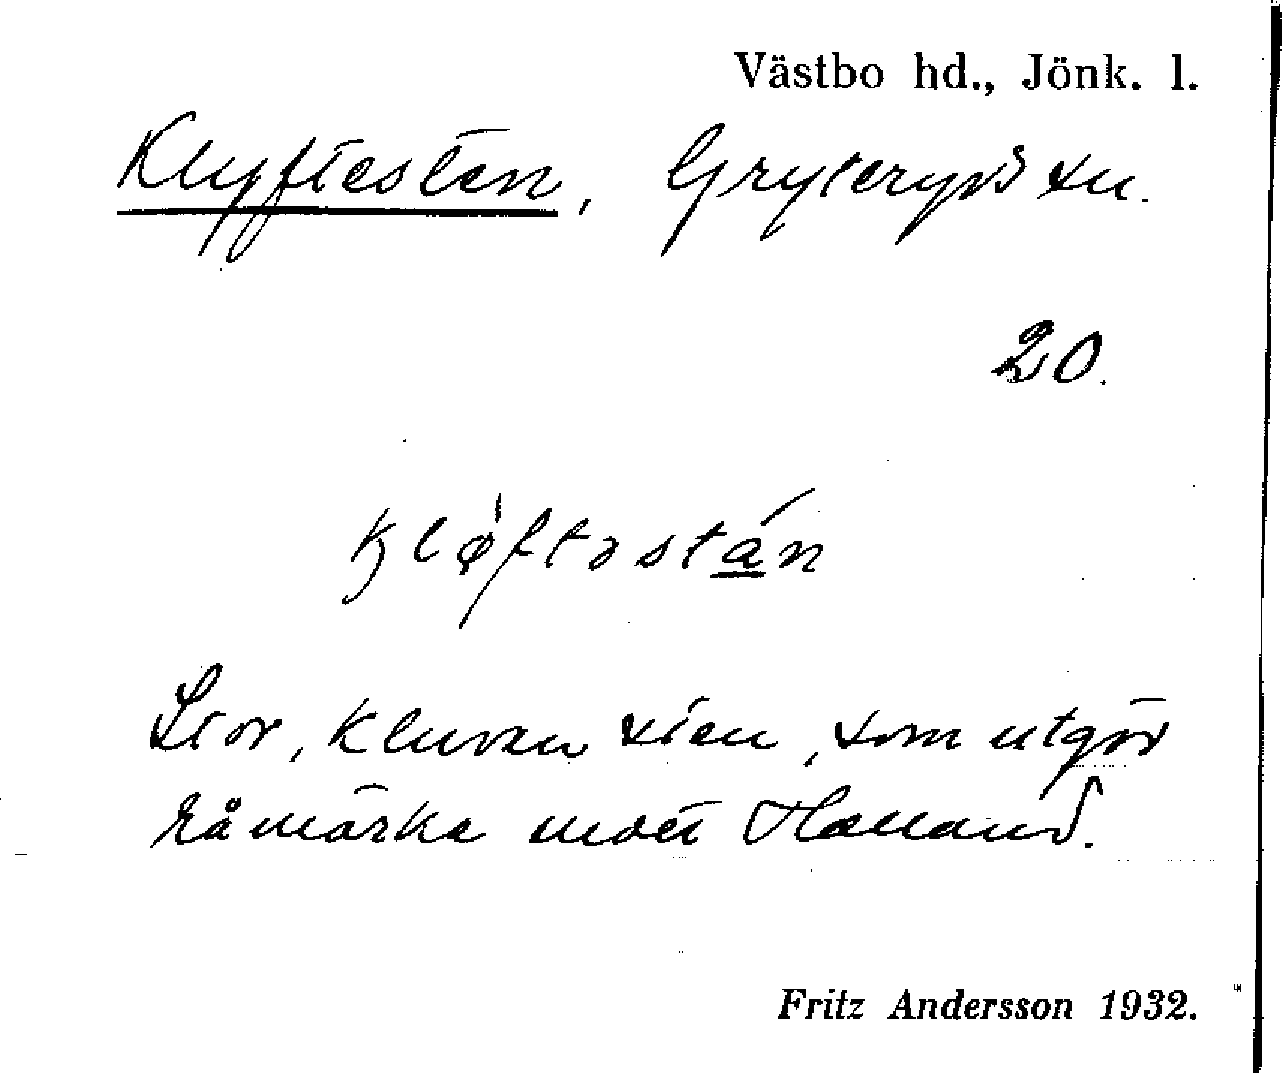 Västbo hd., Jönk. l.
Klyftesten, Gryteryds sn.
20.
kløftəstán
Stor, kluven sten, som utgör
råmärke mot Halland.
Fritz Andersson 1932.